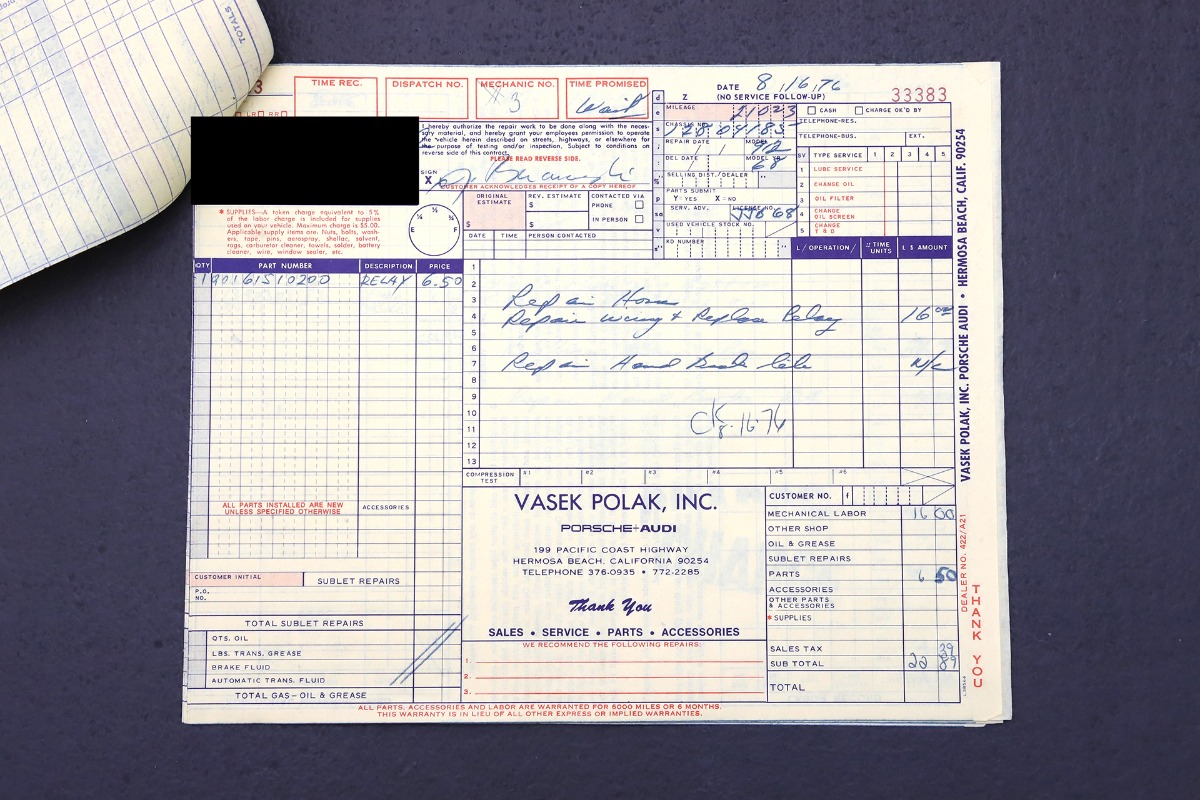 TOTALS
3
TIME REC.
DISPATCH NO.
MECHANIC NO.
3
TIME PROMISED
Wait
Z
DATE 8/16/76
(NO SERVICE FOLLOW-UP)
33383
LR
RR
I hereby authorize the repair work to be done along with the neces-
sary material, and hereby grant your employees permission to operate
the vehicle herein described on streets, highways, or elsewhere for
the purpose of testing and/or inspection. Subject to conditions on
reverse side of this contract.
PLEASE READ REVERSE SIDE.
SIGN
X
CUSTOMER ACKNOWLEDGES RECEIPT OF A COPY HEREOF
MILEAGE
CHASSIS NO.
REPAIR DATE
MODEL
912
DEL DATE
MODEL YR.
68
SELLING DIST./DEALER
PARTS SUBMIT
Y=YES X=NO
SERV. ADV.
LICENSE NO.
USED VEHICLE STOCK NO.
RD NUMBER
CASH
CHARGE OK'D BY
TELEPHONE-RES.
TELEPHONE-BUS.
EXT.
SV TYPE SERVICE 1 2 3 4 5
1 LUBE SERVICE
2 CHANGE OIL
3 OIL FILTER
4 CHANGE OIL SCREEN
5 CHANGE T & D
* SUPPLIES—A token charge equivalent to 5%
of the labor charge is included for supplies
used on your vehicle. Maximum charge is $5.00.
Applicable supply items are. Nuts, bolts, wash-
ers, tape, pins, aerospray, shellac, solvent,
rags, carburetor cleaner, towels, solder, battery
cleaner, wire, window sealer, etc.
E ¼ ½ ¾ F
ORIGINAL ESTIMATE
$
REV. ESTIMATE
$
$
CONTACTED VIA
PHONE
IN PERSON
DATE
TIME
PERSON CONTACTED
QTY PART NUMBER DESCRIPTION PRICE
1 90161510200 RELAY 6.50
L/OPERATION/ TIME UNITS L $ AMOUNT
1
2
3 Repair Horn
4 Repair wiring + Replace Relay 16 00
5
6
7 Repair Hand Brake lite N/C
8
9
10
11 CK 8-16-76
12
13
COMPRESSION TEST #1 #2 #3 #4 #5 #6
ALL PARTS INSTALLED ARE NEW
UNLESS SPECIFIED OTHERWISE
ACCESSORIES
CUSTOMER INITIAL
SUBLET REPAIRS
P.O. NO.
TOTAL SUBLET REPAIRS
QTS. OIL
LBS. TRANS. GREASE
BRAKE FLUID
AUTOMATIC TRANS. FLUID
TOTAL GAS-OIL & GREASE
VASEK POLAK, INC.
PORSCHE+AUDI
199 PACIFIC COAST HIGHWAY
HERMOSA BEACH, CALIFORNIA 90254
TELEPHONE 376-0935 • 772-2285
Thank You
SALES • SERVICE • PARTS • ACCESSORIES
WE RECOMMEND THE FOLLOWING REPAIRS:
1.
2.
3.
CUSTOMER NO. f
MECHANICAL LABOR 16 00
OTHER SHOP
OIL & GREASE
SUBLET REPAIRS
PARTS 6 50
ACCESSORIES
OTHER PARTS & ACCESSORIES
* SUPPLIES
SALES TAX 39
SUB TOTAL 22 89
TOTAL
ALL PARTS, ACCESSORIES AND LABOR ARE WARRANTED FOR 6000 MILES OR 6 MONTHS.
THIS WARRANTY IS IN LIEU OF ALL OTHER EXPRESS OR IMPLIED WARRANTIES.
VASEK POLAK, INC. PORSCHE AUDI • HERMOSA BEACH, CALIF. 90254
DEALER NO. 422/A21
THANK YOU